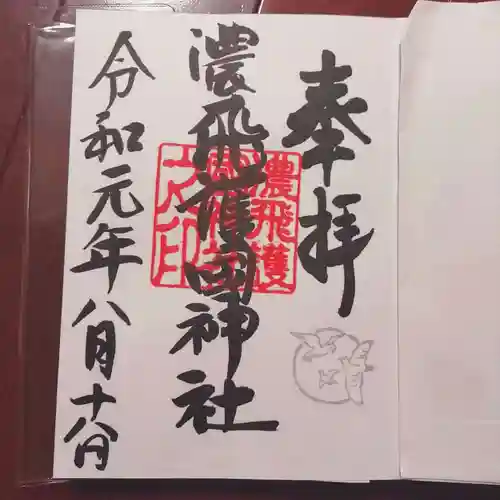 奉拝
濃飛護国神社
令和元年八月十八日
濃飛護
之印